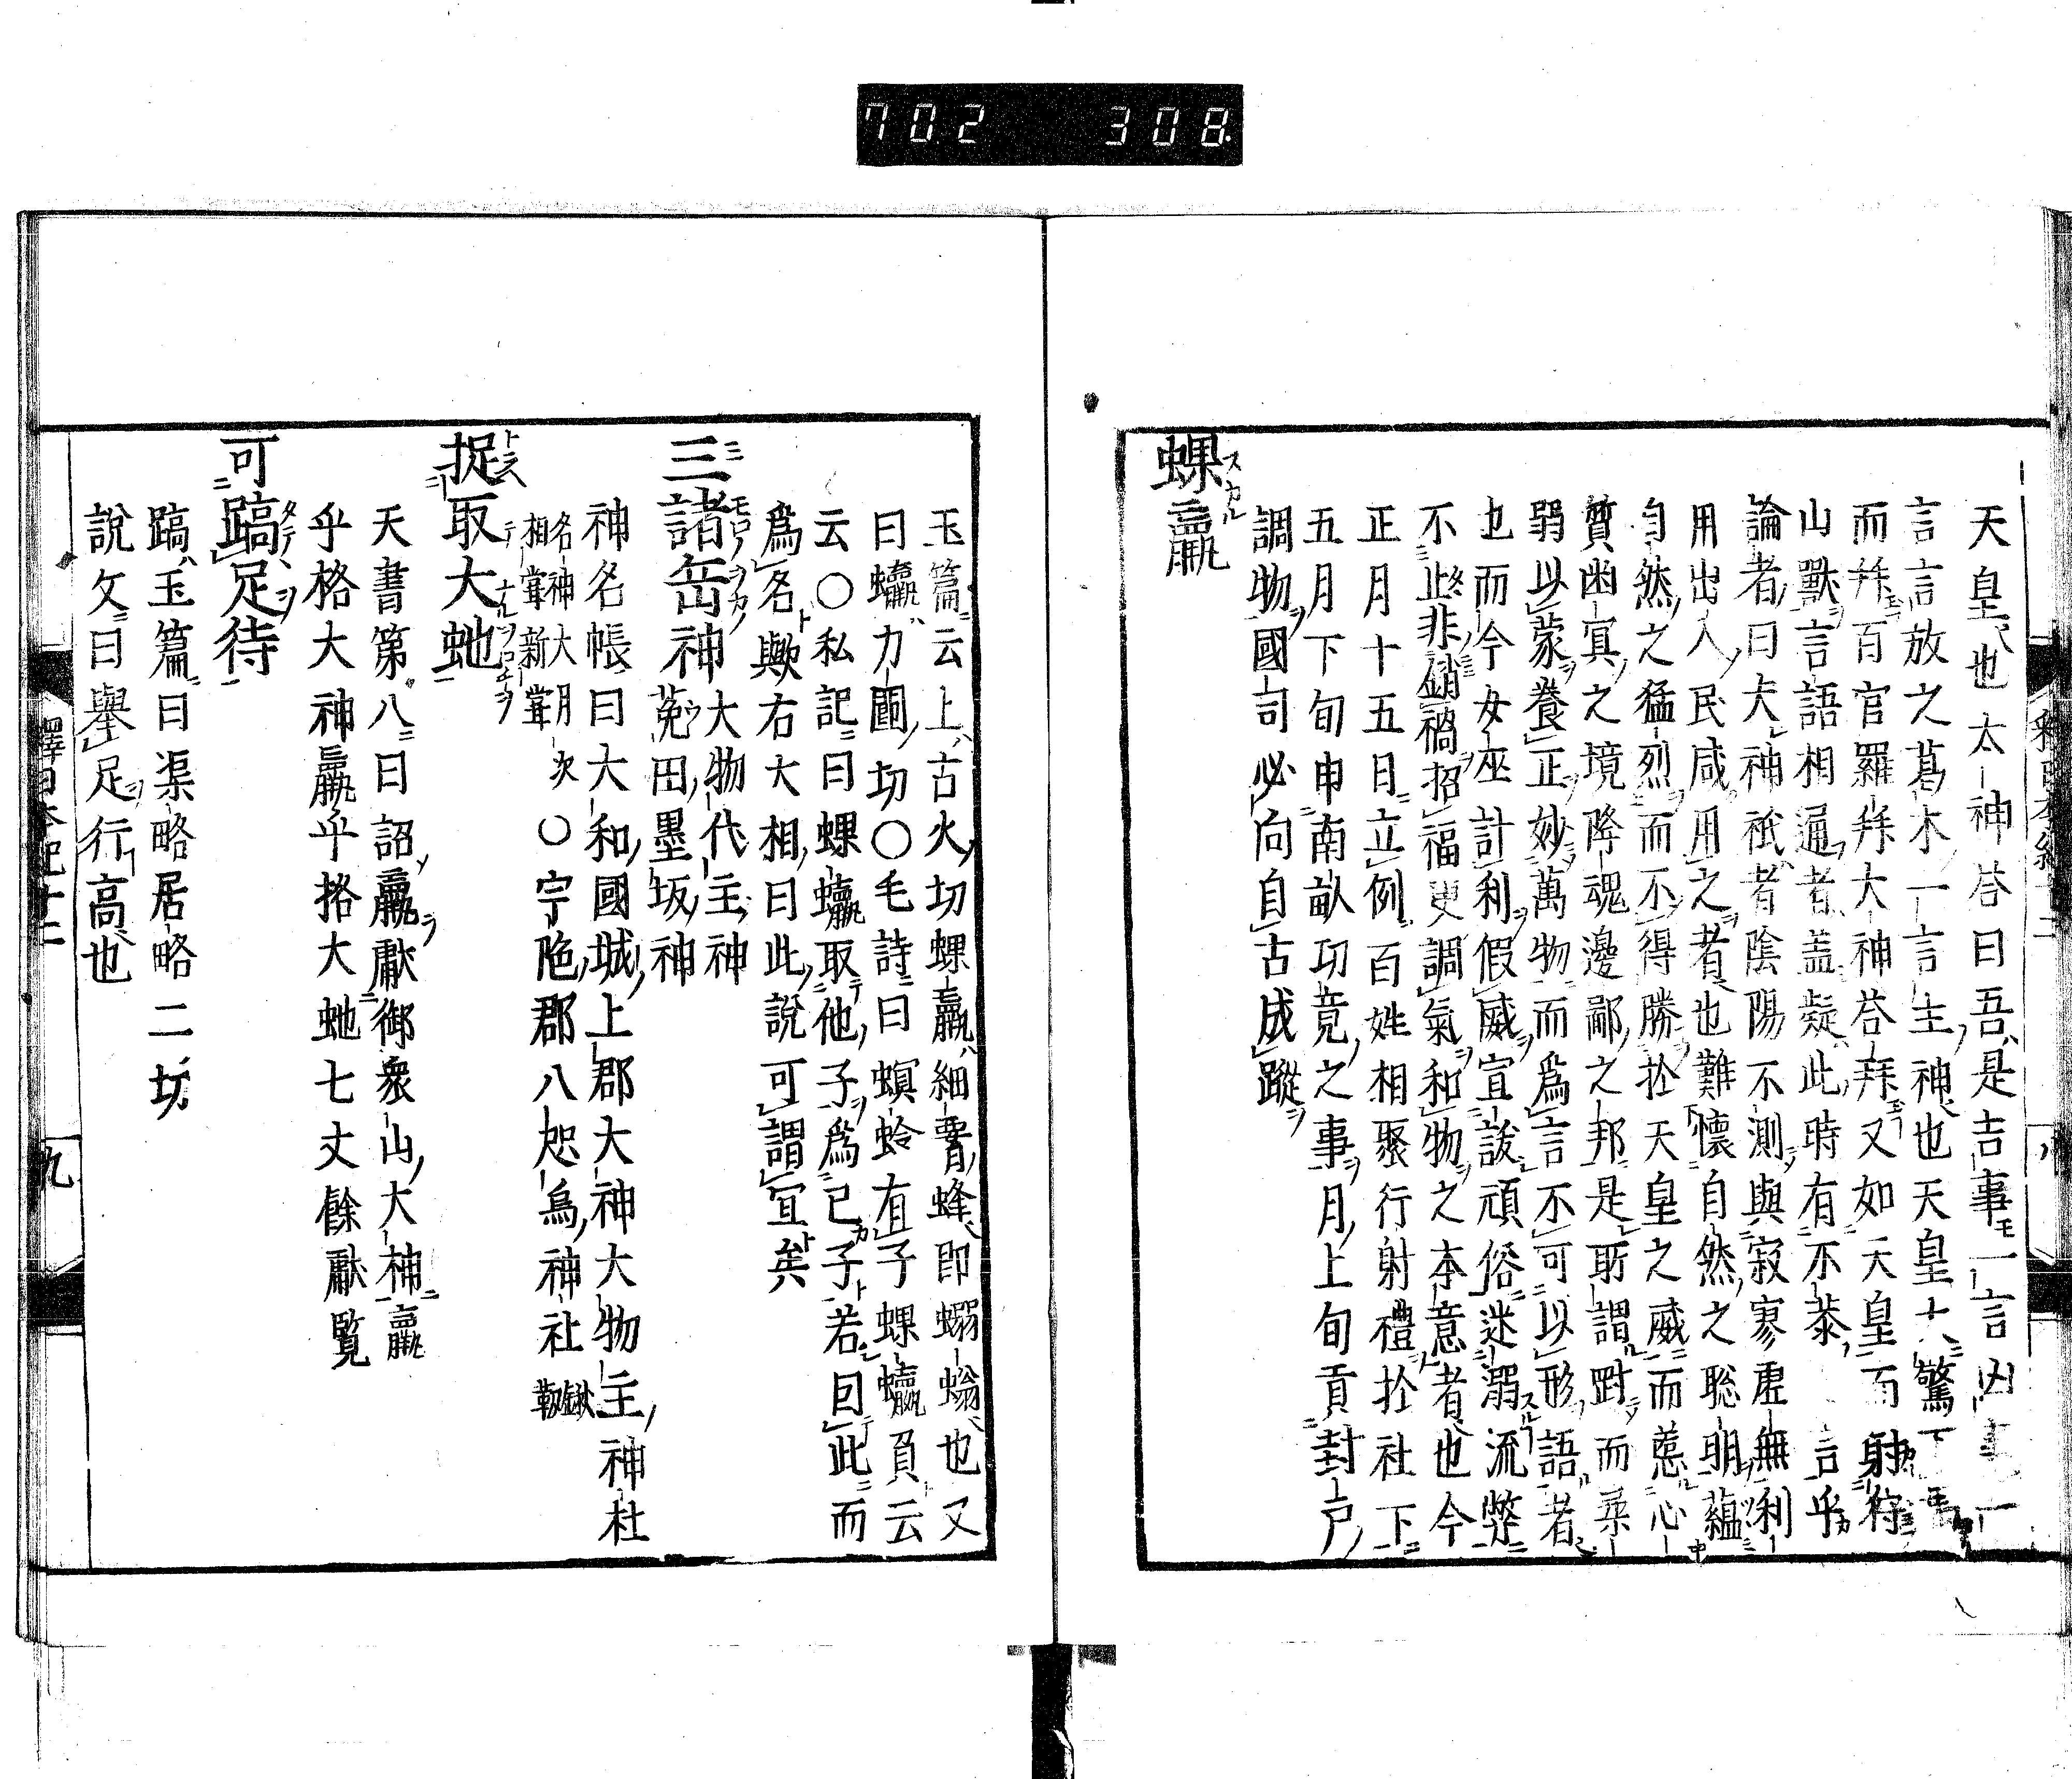 702 308
天皇也太神答曰吾是吉事一言凶事一
言言放之葛木一言主神也天皇大驚下
而拜百官羅拜大神答拜又如天皇而射狩
山獸言語相通者蓋疑此時有不恭言乎
論者曰夫神祇者陰陽不測與寂寥虛無利
用出入民咸用之者也難懷自然之聡明蘊
自然之猛烈而不得勝於天皇之威而恚心
質幽冥之境降魂邊鄙之邦是所謂對而
弱以蒙養正妙萬物而為言不可以形語者
也而今女巫計利假威宣詖頑俗迷溺流弊
不止非銷禍招福更調氣和物之本意者也今
正月十五日立例百姓相聚行射禮於社下
五月下旬申南畝功竟之事月上旬貢封戶
調物國司必向自古成蹤
蜾蠃
玉篇云上古火切蜾蠃細腰蜂即蠮螉也又
曰蠃力圖切○毛詩曰螟蛉有子蜾蠃負云
云○私記曰蜾蠃取他子為己子若因此而
為名歟右大相曰此說可謂宜矣
三諸岳神 大物代主神 菟田墨坂神
神名帳曰大和國城上郡大神大物主神社
名神大月次
相嘗新嘗 ○宇陁郡八咫烏神社 鍬靫
捉取大虵
天書第八曰詔蠃獻御衆山大楠蠃
乎格大神蠃乎挌大虵七丈餘獻覧
可蹻足待
蹻玉篇曰渠略居略二切
說文曰舉足行高也
釋日本紀十二
九